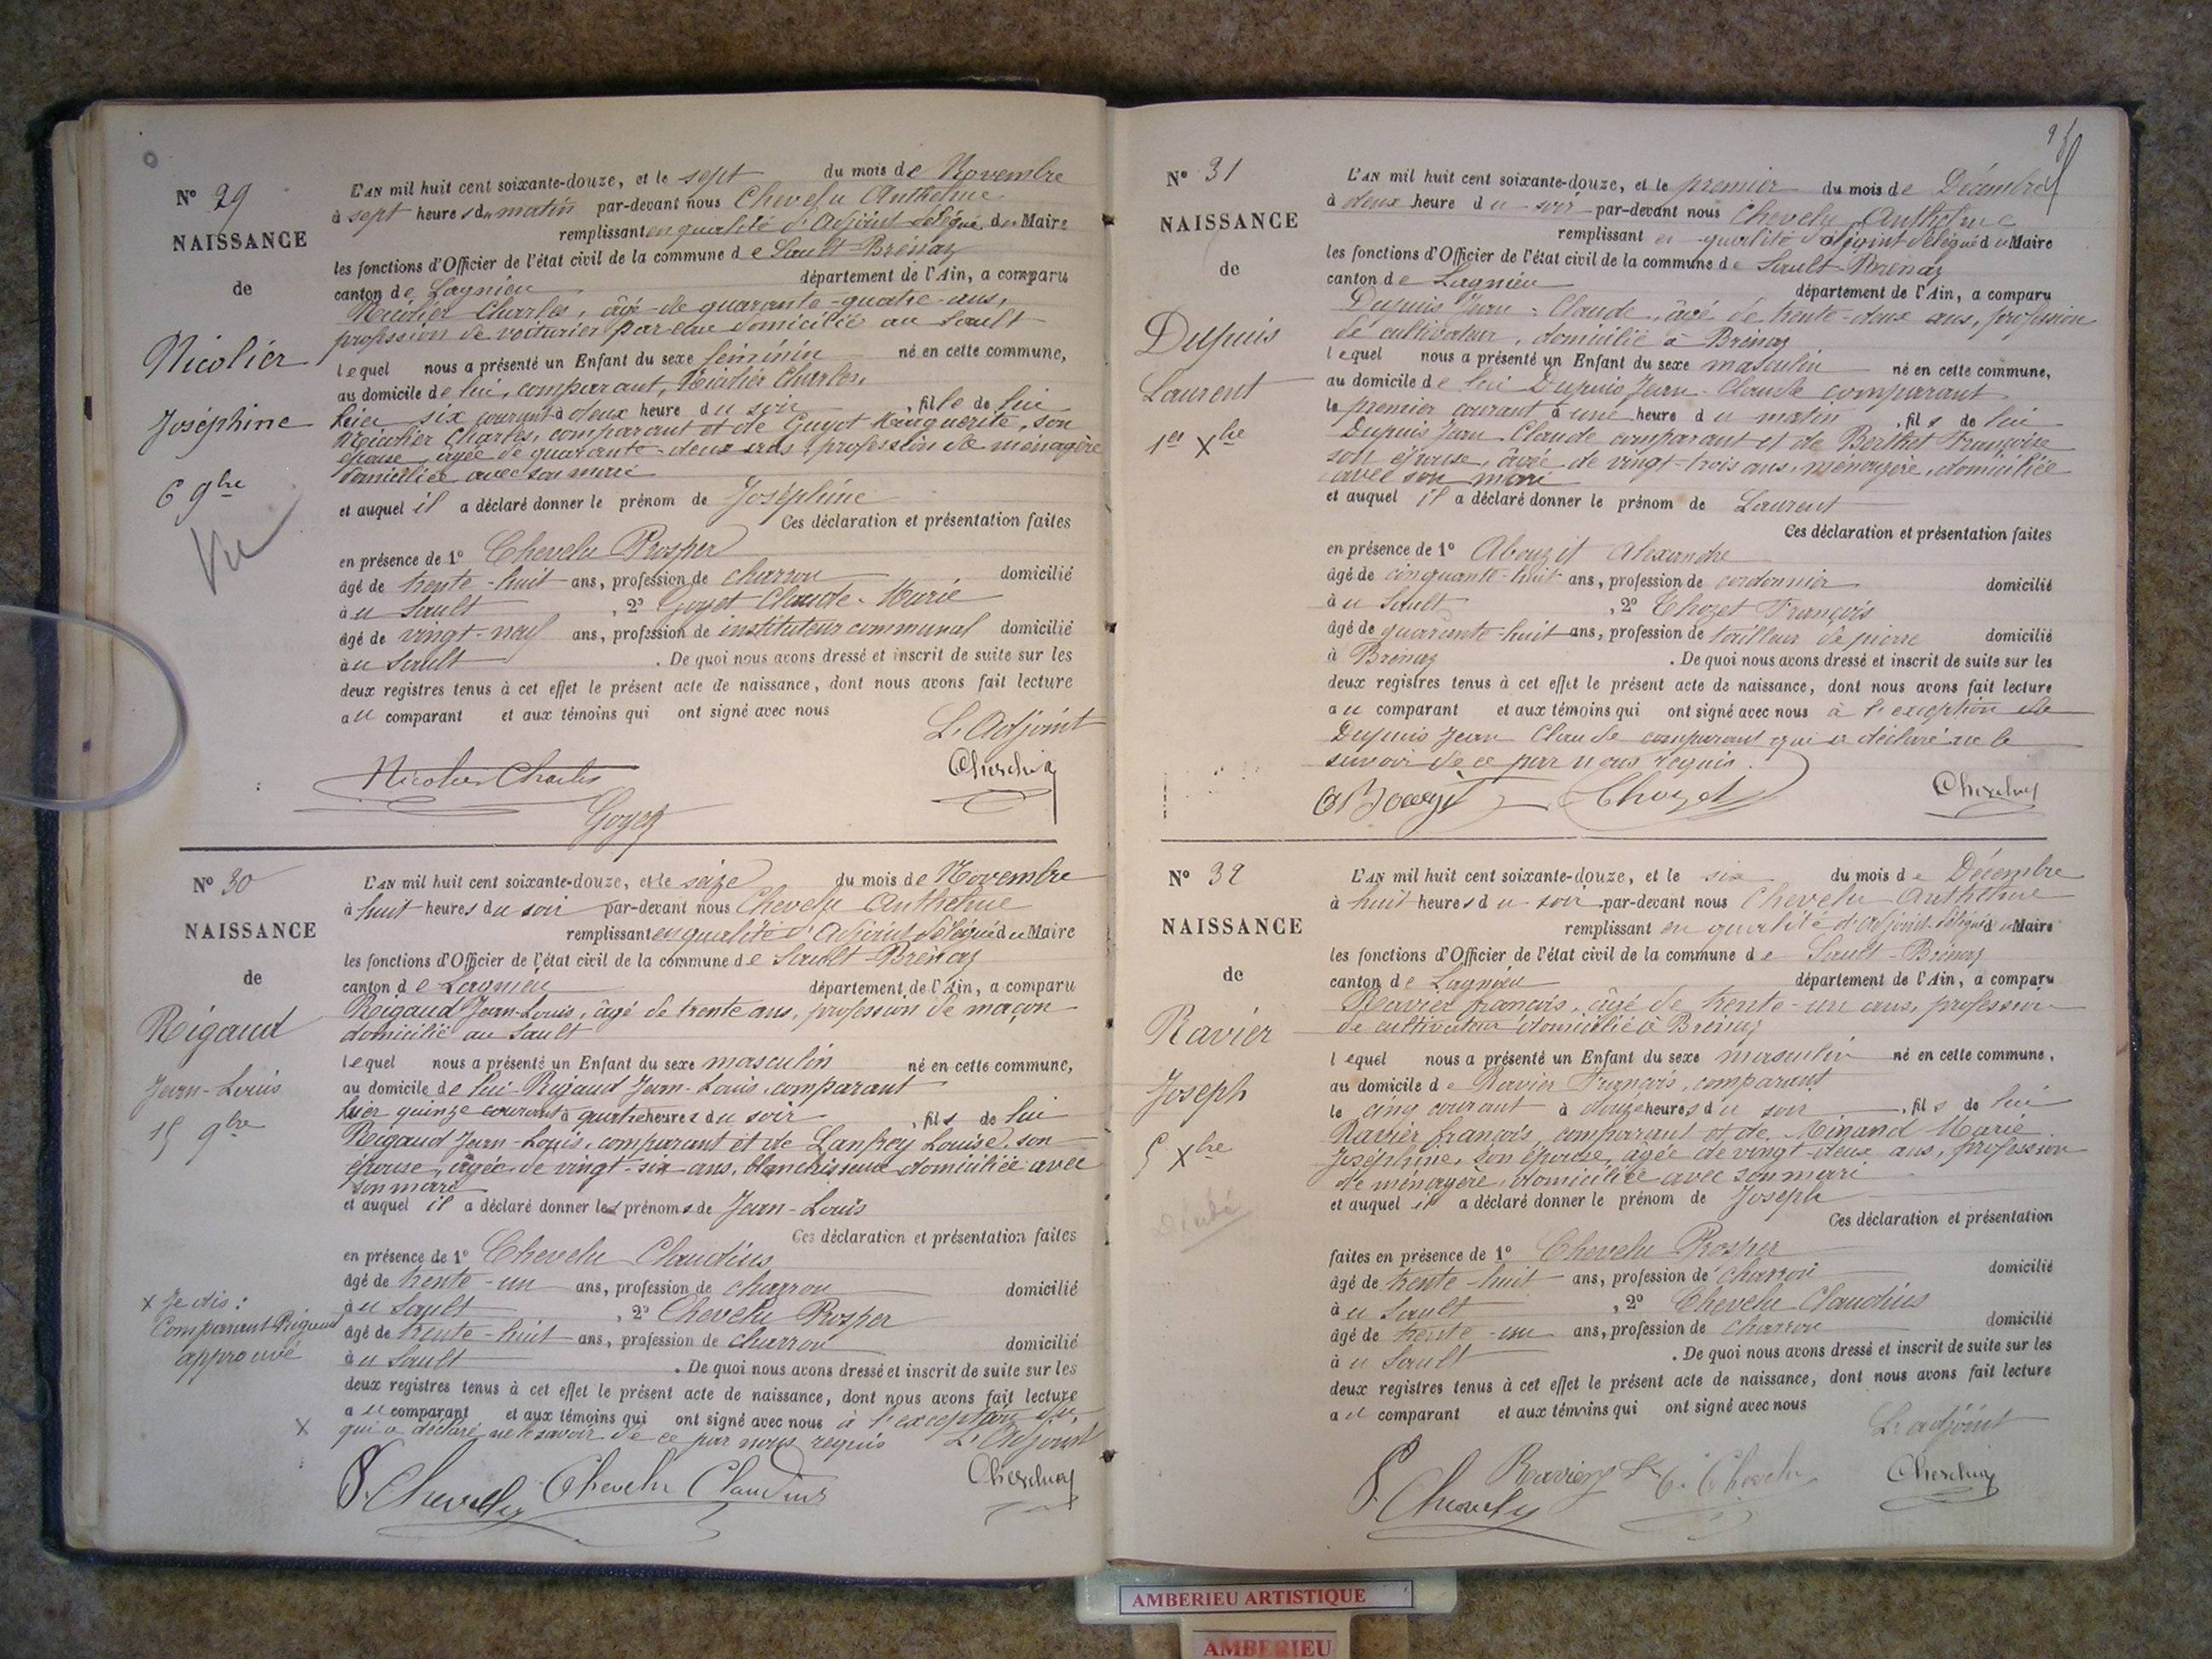 Nº 29
NAISSANCE
de
Nicolier
Joséphine
6 9bre
Vu
L'AN mil huit cent soixante-douze, et le sept du mois de Novembre
à sept heures du matin par-devant nous Chevelu Anthelme
remplissant en qualité d'Adjoint délégué du Maire
les fonctions d'Officier de l'état civil de la commune de Sault-Brénaz
canton de Lagnieu département de l'Ain, a comparu
Nicolier Charles, âgé de quarante-quatre ans,
profession de voiturier par eau domicilié au Sault
lequel nous a présenté un Enfant du sexe féminin né en cette commune,
au domicile de lui, comparant, Nicolier Charles,
hier six courant à deux heure du soir, fille de lui
Nicolier Charles, comparant et de Guyot Marguerite, son
épouse, âgée de quarante-deux ans, profession de ménagère
domiciliée avec son mari
et auquel il a déclaré donner le prénom de Joséphine
Ces déclaration et présentation faites
en présence de 1º Chevelu Prosper
âgé de trente-huit ans, profession de charron domicilié
au Sault, 2º Goyet Claude-Marie
âgé de vingt-neuf ans, profession de instituteur communal domicilié
au Sault. De quoi nous avons dressé et inscrit de suite sur les
deux registres tenus à cet effet le présent acte de naissance, dont nous avons fait lecture
au comparant et aux témoins qui ont signé avec nous
L'Adjoint
Nicolier Charles
Goyet
Nº 30
NAISSANCE
de
Rigaud
Jean-Louis
15 9bre
x Je dis:
Comparant Rigaud
approuvé
L'AN mil huit cent soixante-douze, et le seize du mois de Novembre
à huit heures du soir par-devant nous Chevelu Anthelme
remplissant en qualité d'Adjoint délégué du Maire
les fonctions d'Officier de l'état civil de la commune de Sault-Brénaz
canton de Lagnieu département de l'Ain, a comparu
Rigaud Jean-Louis, âgé de trente ans, profession de maçon
domicilié au Sault
lequel nous a présenté un Enfant du sexe masculin né en cette commune,
au domicile de lui Rigaud Jean-Louis, comparant
hier quinze courant à quatre heures du soir, fils de lui
Rigaud Jean-Louis, comparant et de Lanfrey Louise, son
épouse, âgée de vingt-six ans, blanchisseuse domiciliée avec
son mari
et auquel il a déclaré donner les prénoms de Jean-Louis
Ces déclaration et présentation faites
en présence de 1º Chevelu Claudius
âgé de trente-un ans, profession de charron domicilié
au Sault, 2º Chevelu Prosper
âgé de trente-huit ans, profession de charron domicilié
au Sault. De quoi nous avons dressé et inscrit de suite sur les
deux registres tenus à cet effet le présent acte de naissance, dont nous avons fait lecture
au comparant et aux témoins qui ont signé avec nous à l'exception du
x qui a déclaré ne le savoir de ce par nous requis L'Adjoint
P. Chevelu Chevelu Claudius
Nº 31
NAISSANCE
de
Dupuis
Laurent
1er Xbre
L'AN mil huit cent soixante-douze, et le premier du mois de Décembre
à deux heure du soir par-devant nous Chevelu Anthelme
remplissant en qualité d'adjoint délégué du Maire
les fonctions d'Officier de l'état civil de la commune de Sault-Brénaz
canton de Lagnieu département de l'Ain, a comparu
Dupuis Jean-Claude, âgé de trente-deux ans, profession
de cultivateur, domicilié à Brénaz
lequel nous a présenté un Enfant du sexe masculin né en cette commune,
au domicile de lui Dupuis Jean-Claude comparant
le premier courant à une heure du matin, fils de lui
Dupuis Jean-Claude comparant et de Berthet Françoise
son épouse, âgée de vingt-trois ans, ménagère, domiciliée
avec son mari
et auquel il a déclaré donner le prénom de Laurent
Ces déclaration et présentation faites
en présence de 1º Abouzit Alexandre
âgé de cinquante-huit ans, profession de cordonnier domicilié
au Sault, 2º Chozet François
âgé de quarante-huit ans, profession de tailleur de pierre domicilié
à Brénaz. De quoi nous avons dressé et inscrit de suite sur les
deux registres tenus à cet effet le présent acte de naissance, dont nous avons fait lecture
au comparant et aux témoins qui ont signé avec nous à l'exception de
Dupuis Jean Claude comparant qui a déclaré ne le
savoir de ce par nous requis.
Chozet
Nº 32
NAISSANCE
de
Ravier
Joseph
5 Xbre
L'AN mil huit cent soixante-douze, et le six du mois de Décembre
à huit heures du soir par-devant nous Chevelu Anthelme
remplissant en qualité d'adjoint délégué du Maire
les fonctions d'Officier de l'état civil de la commune de Sault-Brénaz
canton de Lagnieu département de l'Ain, a comparu
Ravier françois, âgé de trente-un ans, profession
de cultivateur domicilié à Brénaz
lequel nous a présenté un Enfant du sexe masculin né en cette commune,
au domicile de Ravier François, comparant
le cinq courant à douze heures du soir, fils de lui
Ravier françois, comparant et de Minand Marie
Joséphine, son épouse, âgée de vingt-deux ans, profession
de ménagère, domiciliée avec son mari
et auquel il a déclaré donner le prénom de Joseph
Ces déclaration et présentation
faites en présence de 1º Chevelu Prosper
âgé de trente-huit ans, profession de charron domicilié
au Sault, 2º Chevelu Claudius
âgé de trente-un ans, profession de charron domicilié
au Sault. De quoi nous avons dressé et inscrit de suite sur les
deux registres tenus à cet effet le présent acte de naissance, dont nous avons fait lecture
au comparant et aux témoins qui ont signé avec nous
L'adjoint
P. Chevelu Ravier C. Chevelu
AMBERIEU ARTISTIQUE
AMBERIEU